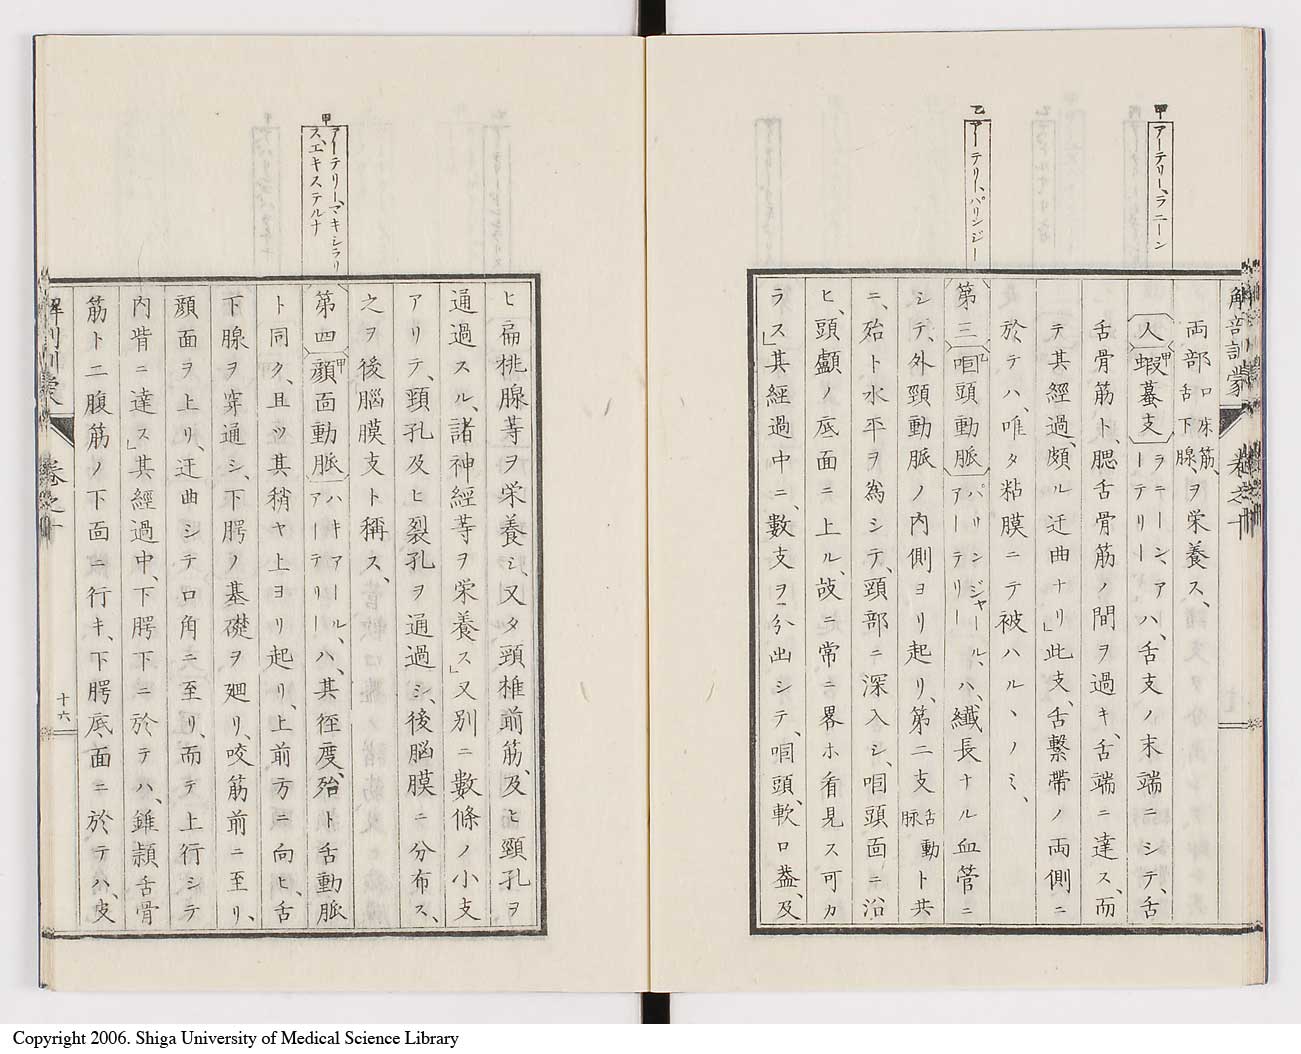 甲
アーテリー、ラニーン
乙
アーテリー、パリンジー
解剖訓蒙 卷之十
両部 口床筋 舌下腺 ヲ栄養ス、
人 甲蝦蟇支 ラニーン、アーテリー ハ、舌支ノ末端ニシテ、舌
舌骨筋ト、腮舌骨筋ノ間ヲ過キ、舌端ニ達ス、而
テ其經過、頗ル迂曲ナリ」此支、舌繫帶ノ両側ニ
於テハ、唯タ粘膜ニテ被ハルヽノミ、
第三 乙咽頭動脈 パリンジャール、アーテリー ハ、纎長ナル血管ニ
シテ、外頸動脈ノ内側ヨリ起リ、第二支 舌動脈 ト共
ニ、殆ト水平ヲ爲シテ、頸部ニ深入シ、咽頭面ニ沿
ヒ、頭顱ノ底面ニ上ル、故ニ常ニ畧ホ看見ス可カ
ラス」其經過中ニ、數支ヲ分出シテ、咽頭、軟口蓋、及
甲
アーテリー、マキシラリ
ス、エキステルナ
ヒ扁桃腺等ヲ栄養シ、又タ頸椎前筋、及ヒ頸孔ヲ
通過スル、諸神經等ヲ栄養ス」又別ニ數條ノ小支
アリテ、頸孔及ヒ裂孔ヲ通過シ、後脳膜ニ分布ス、
之ヲ後脳膜支ト稱ス、
第四 甲顔面動脈 ハキアール、アーテリー ハ、其徑度、殆ト舌動脈
ト同ク、且ツ其稍ヤ上ヨリ起リ、上前方ニ向ヒ、舌
下腺ヲ穿通シ、下腭ノ基礎ヲ廻リ、咬筋前ニ至リ、
顔面ヲ上リ、迂曲シテ口角ニ至リ、而テ上行シテ
内眥ニ達ス」其經過中、下腭下ニ於テハ、錐顙舌骨
筋ト二腹筋ノ下面ニ行キ、下腭底面ニ於テハ、皮
解剖訓蒙 卷之十
十六
Copyright 2006. Shiga University of Medical Science Library